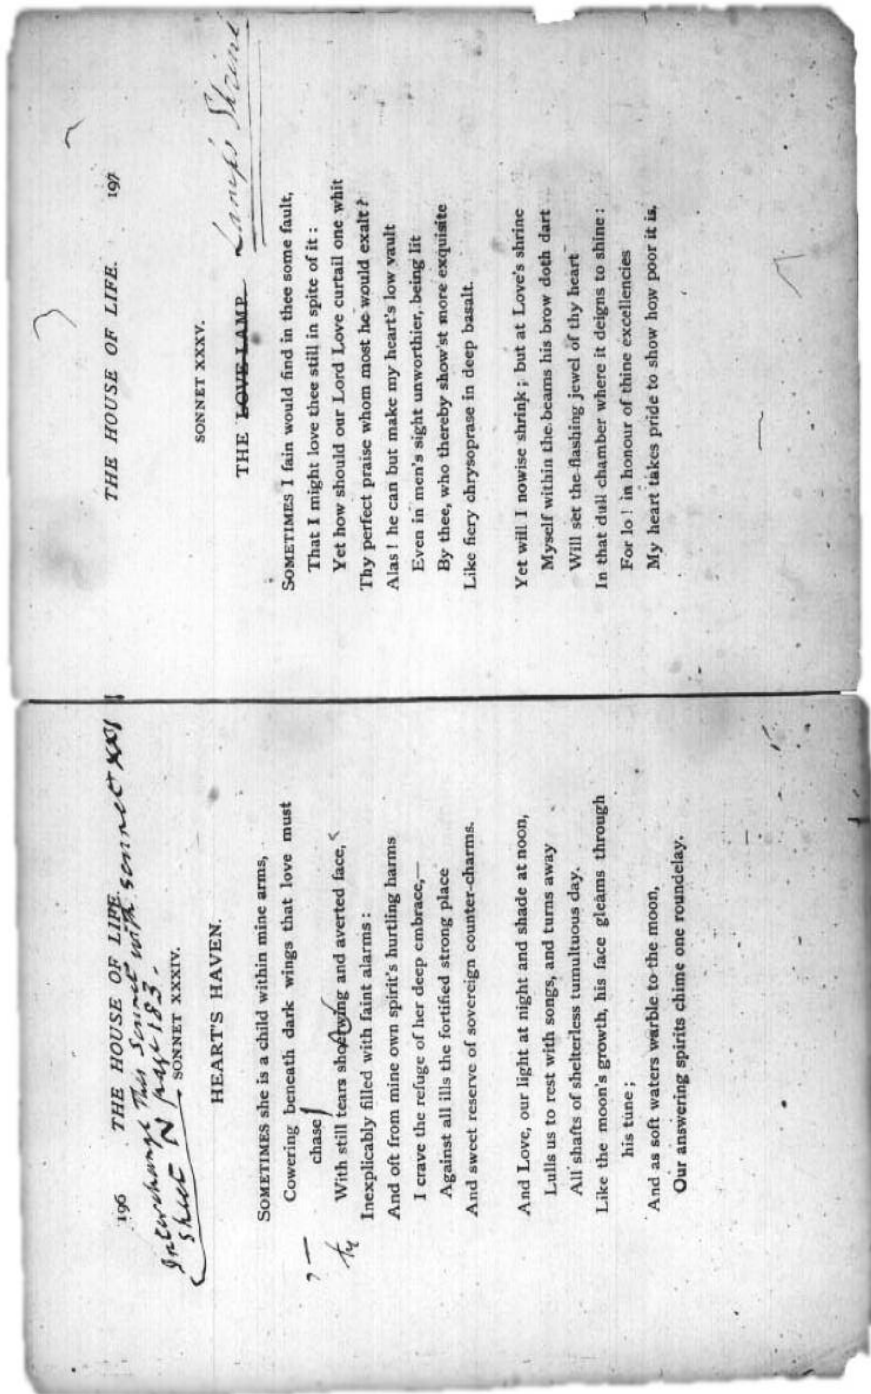 196 THE HOUSE OF LIFE.
Interchange This Sonnet with sonnet XXI
Sheet N page 183.
SONNET XXXIV.
HEART'S HAVEN.
SOMETIMES she is a child within mine arms,
Cowering beneath dark wings that love must
chase
, —
With still tears showing and averted face,
Inexplicably filled with faint alarms :
And oft from mine own spirit's hurtling harms
I crave the refuge of her deep embrace,—
Against all ills the fortified strong place
And sweet reserve of sovereign counter-charms.
And Love, our light at night and shade at noon,
Lulls us to rest with songs, and turns away
All shafts of shelterless tumultuous day.
Like the moon's growth, his face gleams through
his tune ;
And as soft waters warble to the moon,
Our answering spirits chime one roundelay.
THE HOUSE OF LIFE. 197
SONNET XXXV.
THE LOVE-LAMP. Lamp's Shrine
SOMETIMES I fain would find in thee some fault,
That I might love thee still in spite of it :
Yet how should our Lord Love curtail one whit
Thy perfect praise whom most he would exalt ?
Alas ! he can but make my heart's low vault
Even in men's sight unworthier, being lit
By thee, who thereby show'st more exquisite
Like fiery chrysoprase in deep basalt.
Yet will I nowise shrink ; but at Love's shrine
Myself within the beams his brow doth dart
Will set the flashing jewel of thy heart
In that dull chamber where it deigns to shine :
For lo ! in honour of thine excellencies
My heart takes pride to show how poor it is.